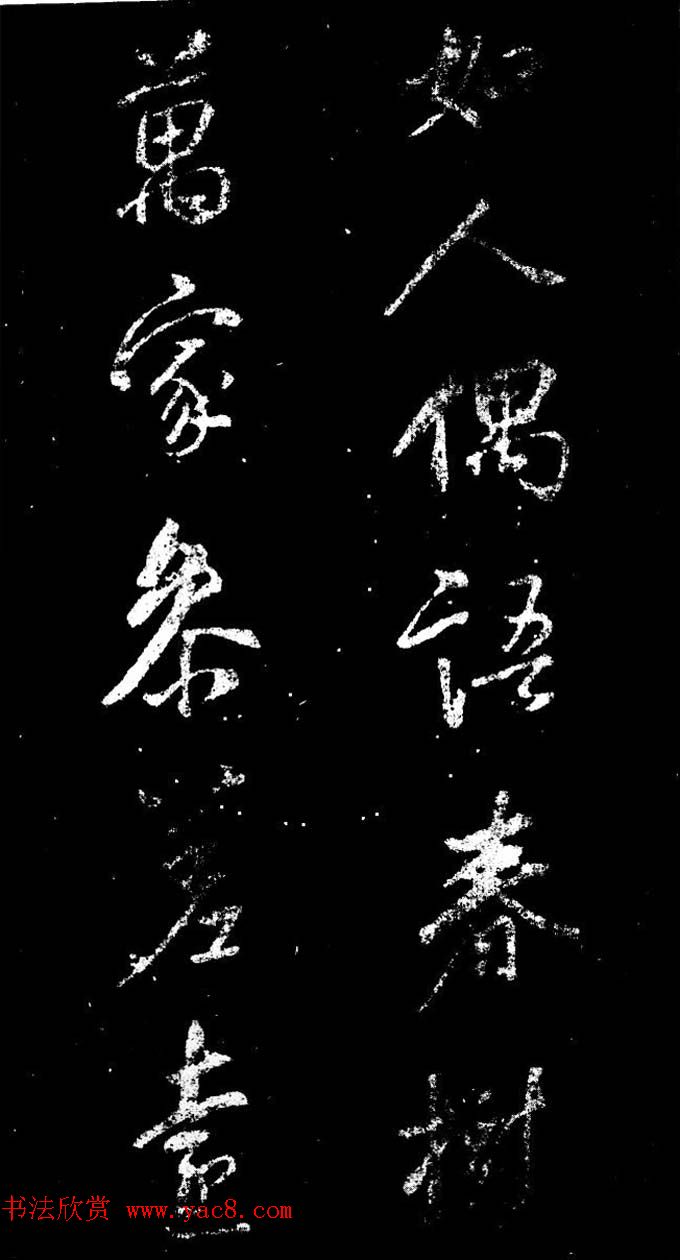 如人偶語春樹
萬家參差
书法欣赏 www.yac8.com